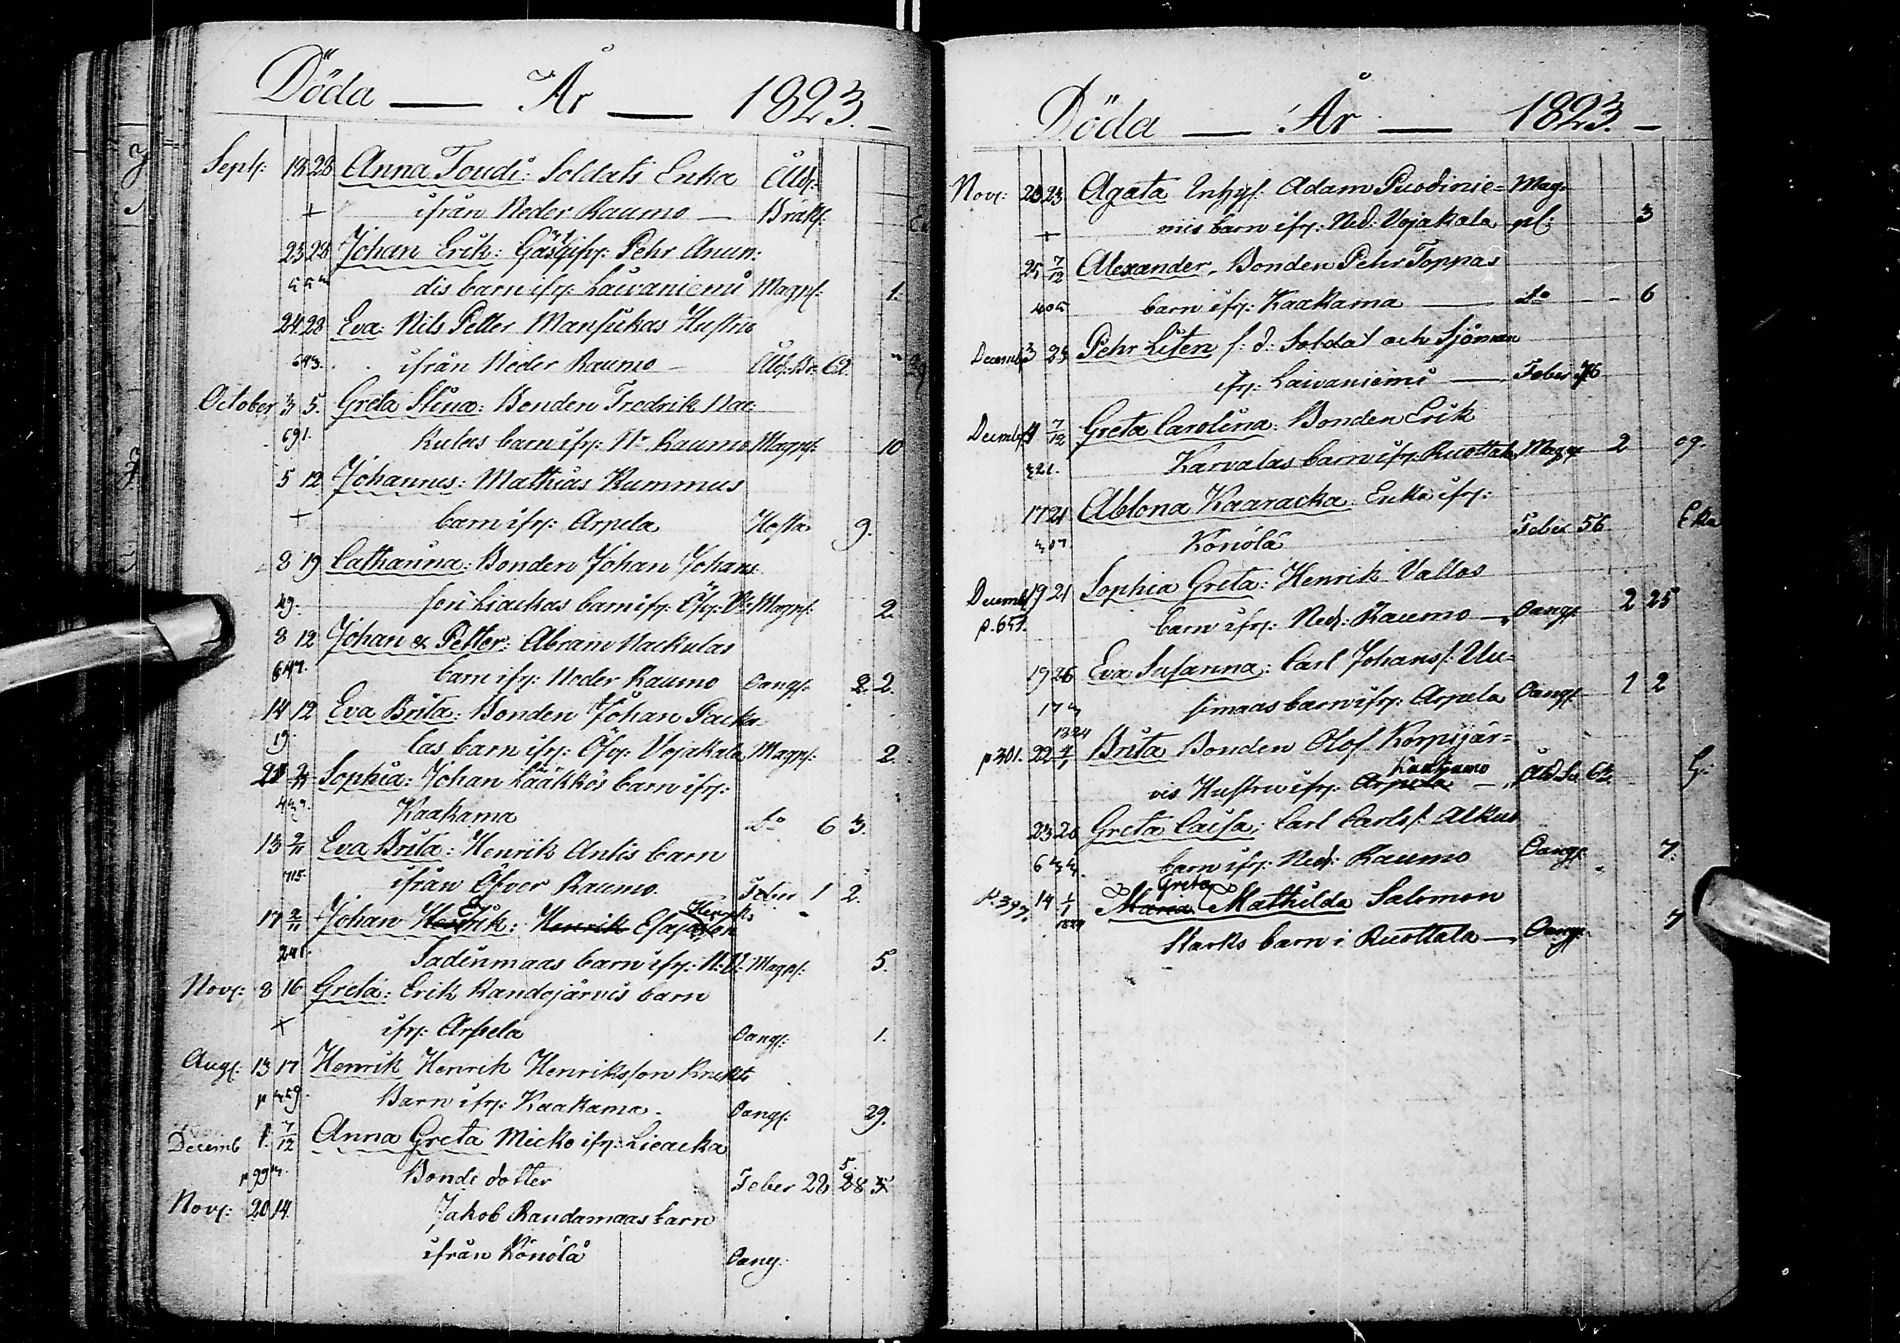 Döda — År — 1823. —
Sept: 18 28 Anna Toudi: Soldats Enka
+ ifrån Neder Raumo —
23 28 Johan Erik: Gästgifv: Pehr Anun:
dis barn ifr: Laivaniemi Magpl: 1.
24 28 Eva: Nils Petter Mansikas Hustru
643. ifrån Neder Raumo — 62
October 3 5. Greta Stina: Bonden Fredrik Nac
691. kulas barn ifr: Nr Raumo Magpl: 10
5 12 Johannes: Mathias Kummus
+ barn ifr: Arpela Hosta 9.
8 19 Catharina: Bonden Johan Johans
49. son Liackas barn ifr: Öfr: V: Magpl: 2.
8 12 Johan & Petter: Abram Nackulas
647. barn ifr: Neder Raumo Oangf: 2 2.
14 12 Eva Brita: Bonden Johan Packa
19. las barn ifr: Öfv: Vojakala Magpl: 2.
Sophia: Johan Lääkkös barn ifr:
Kaakama Do 6 3.
13 2/11 Eva Brita: Henrik Antis barn
715. ifrån Öfver Raumo. Feber 1 2.
17 2/11 Johan Erik: Henrik Esajasson
Henriks
Sadinmaas barn ifr: N: V: Magpl: 5.
Nov: 8 16 Greta: Erik Randojärvis barn
+ ifr: Arpela Oangf: 1.
Aug: 13 17 Henrik Henrik Henriksson Knekts
Barn ifr: Kaakama. Oangf: 29.
Decemb 1. 7/12 Anna Greta Micko ifr: Lieacka
Bonde dotter Feber 22 28 5
5.
Nov: 20 14. Jakob Raudamaas barn
ifrån Könölä Oang:
Döda — År — 1823. —
Nov: 23 23 Agata Inhys: Adam Puodinie= Mag=
+ mis barn ifr: Ned: Vojakala pl: 3
25 7/12 Alexander, Bonden Pehr Toppas
405 barn ifr: Kaakama — Do — 6
Decemb 3 25 Pehr Liten f: d: Soldat och Sjöman
ifr: Laivaniemi — Feber 76
Decemb 4 7/12 Greta Carolina: Bonden Erik
321. Karvalas barn ifr: Ruottala Magpl 2
17 21 Ablona Kaaracka: Enka ifr:
307. Könölä Feber 56 Eka
Decemb 19 21 Sophia Greta: Henrik Vallos
p. 653. barn ifr: Ned: Raumo — Oangf 2 25
19 26 Eva Susanna: Carl Johans: Uu=
173 simaas barn ifr: Arpela Oangf 1 2
1824
p 301. 22 4/1 Brita Bonden Olof Korpijär=
Kaakamo
vis Hustru ifr: Arpela — 63.
23 26 Greta Caisa: Carl Carls: Alkus
633. barn ifr: Ned: Raumo Oangf: 7.
Greta
p. 397. 14 1/1 Maria Mathilda Salomon
1824 Starks barn i Ruottala — Oangf: 7